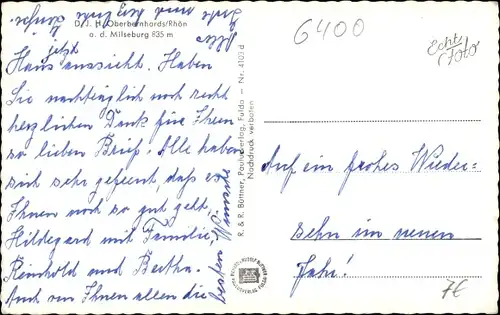 D. J. H. Oberbernhards/Rhön
a. d. Milseburg 835 m
jetzt
Haus aussicht. Haben
Sie nachträglich noch recht
herzlichen Dank für Ihren
so lieben Brief. Alle haben
sich sehr gefreut, daß es
Ihnen noch so gut geht,
Hildegard mit Familie,
Reinhold und Bertha.
Auch von Ihnen allen die
besten Wünsche
Alles
R. & R. Büttner, Paulusverlag, Fulda — Nr. 4103 d
Nachdruck verboten
6400
Echte
Foto
Auf ein frohes Wieder-
sehn im neuen
Jahr!
7€